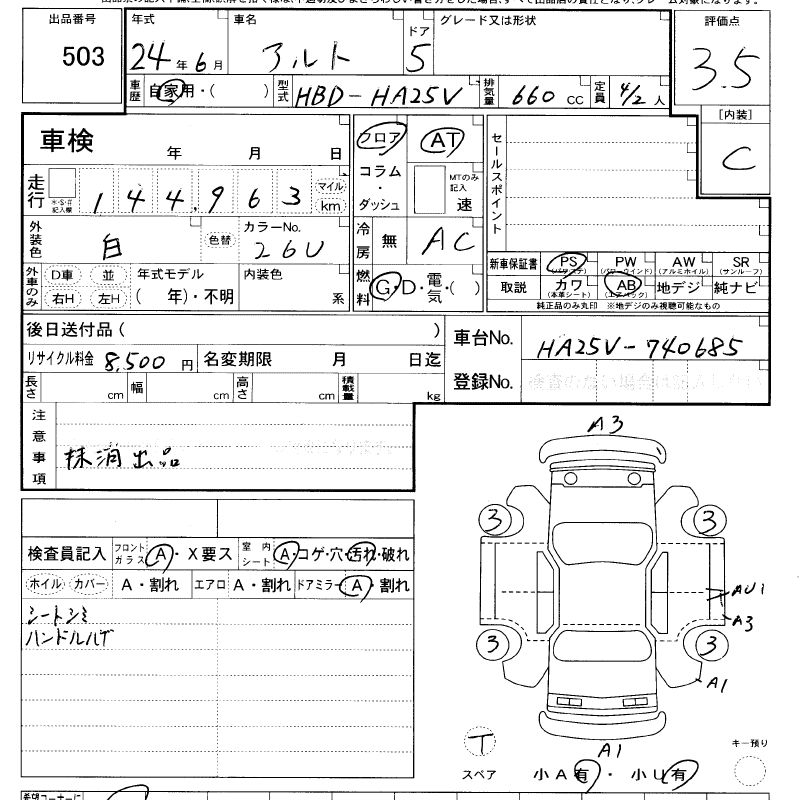 出品番号 年式 車名 ドア グレード又は形状 評価点
503 24年6月 アルト 5 3.5
車歴 自家用・( ) 型式 HBD-HA25V 排気量 660 CC 定員 4/2 人
[内装]
C
車検 年 月 日 フロア AT セールスポイント
走行 *・$・# 記入欄 1 4 4 . 9 6 3 マイル km コラム・ダッシュ MTのみ記入 速
外装色 白 色替 カラーNo. 26U 冷房 無 AC
新車保証書 PS (パワステ) PW (パワーウインド) AW (アルミホイル) SR (サンルーフ)
外車のみ D車 並 右H 左H 年式モデル ( 年)・不明 内装色 系 燃料 G・D・電気・( )
取説 カワ (本革シート) AB (エアバック) 地デジ 純ナビ
純正品のみ丸印 ※地デジのみ視聴可能なもの
後日送付品( ) 車台No. HA25V-740685
リサイクル料金 8,500 円 名変期限 月 日迄
登録No.
長さ cm 幅 cm 高さ cm 積載量 kg
注意事項 抹消出品
検査員記入 フロントガラス A・X要ス 室内シート A・コゲ・穴・汚れ・破れ
ホイル カバー A・割れ エアロ A・割れ ドアミラー A・割れ
シートシミ
ハンドルハゲ
A3
3 3
AU1
A3
3 3
A1
T A1 キー預り
スペア 小A有・小U有
希望コーナーに